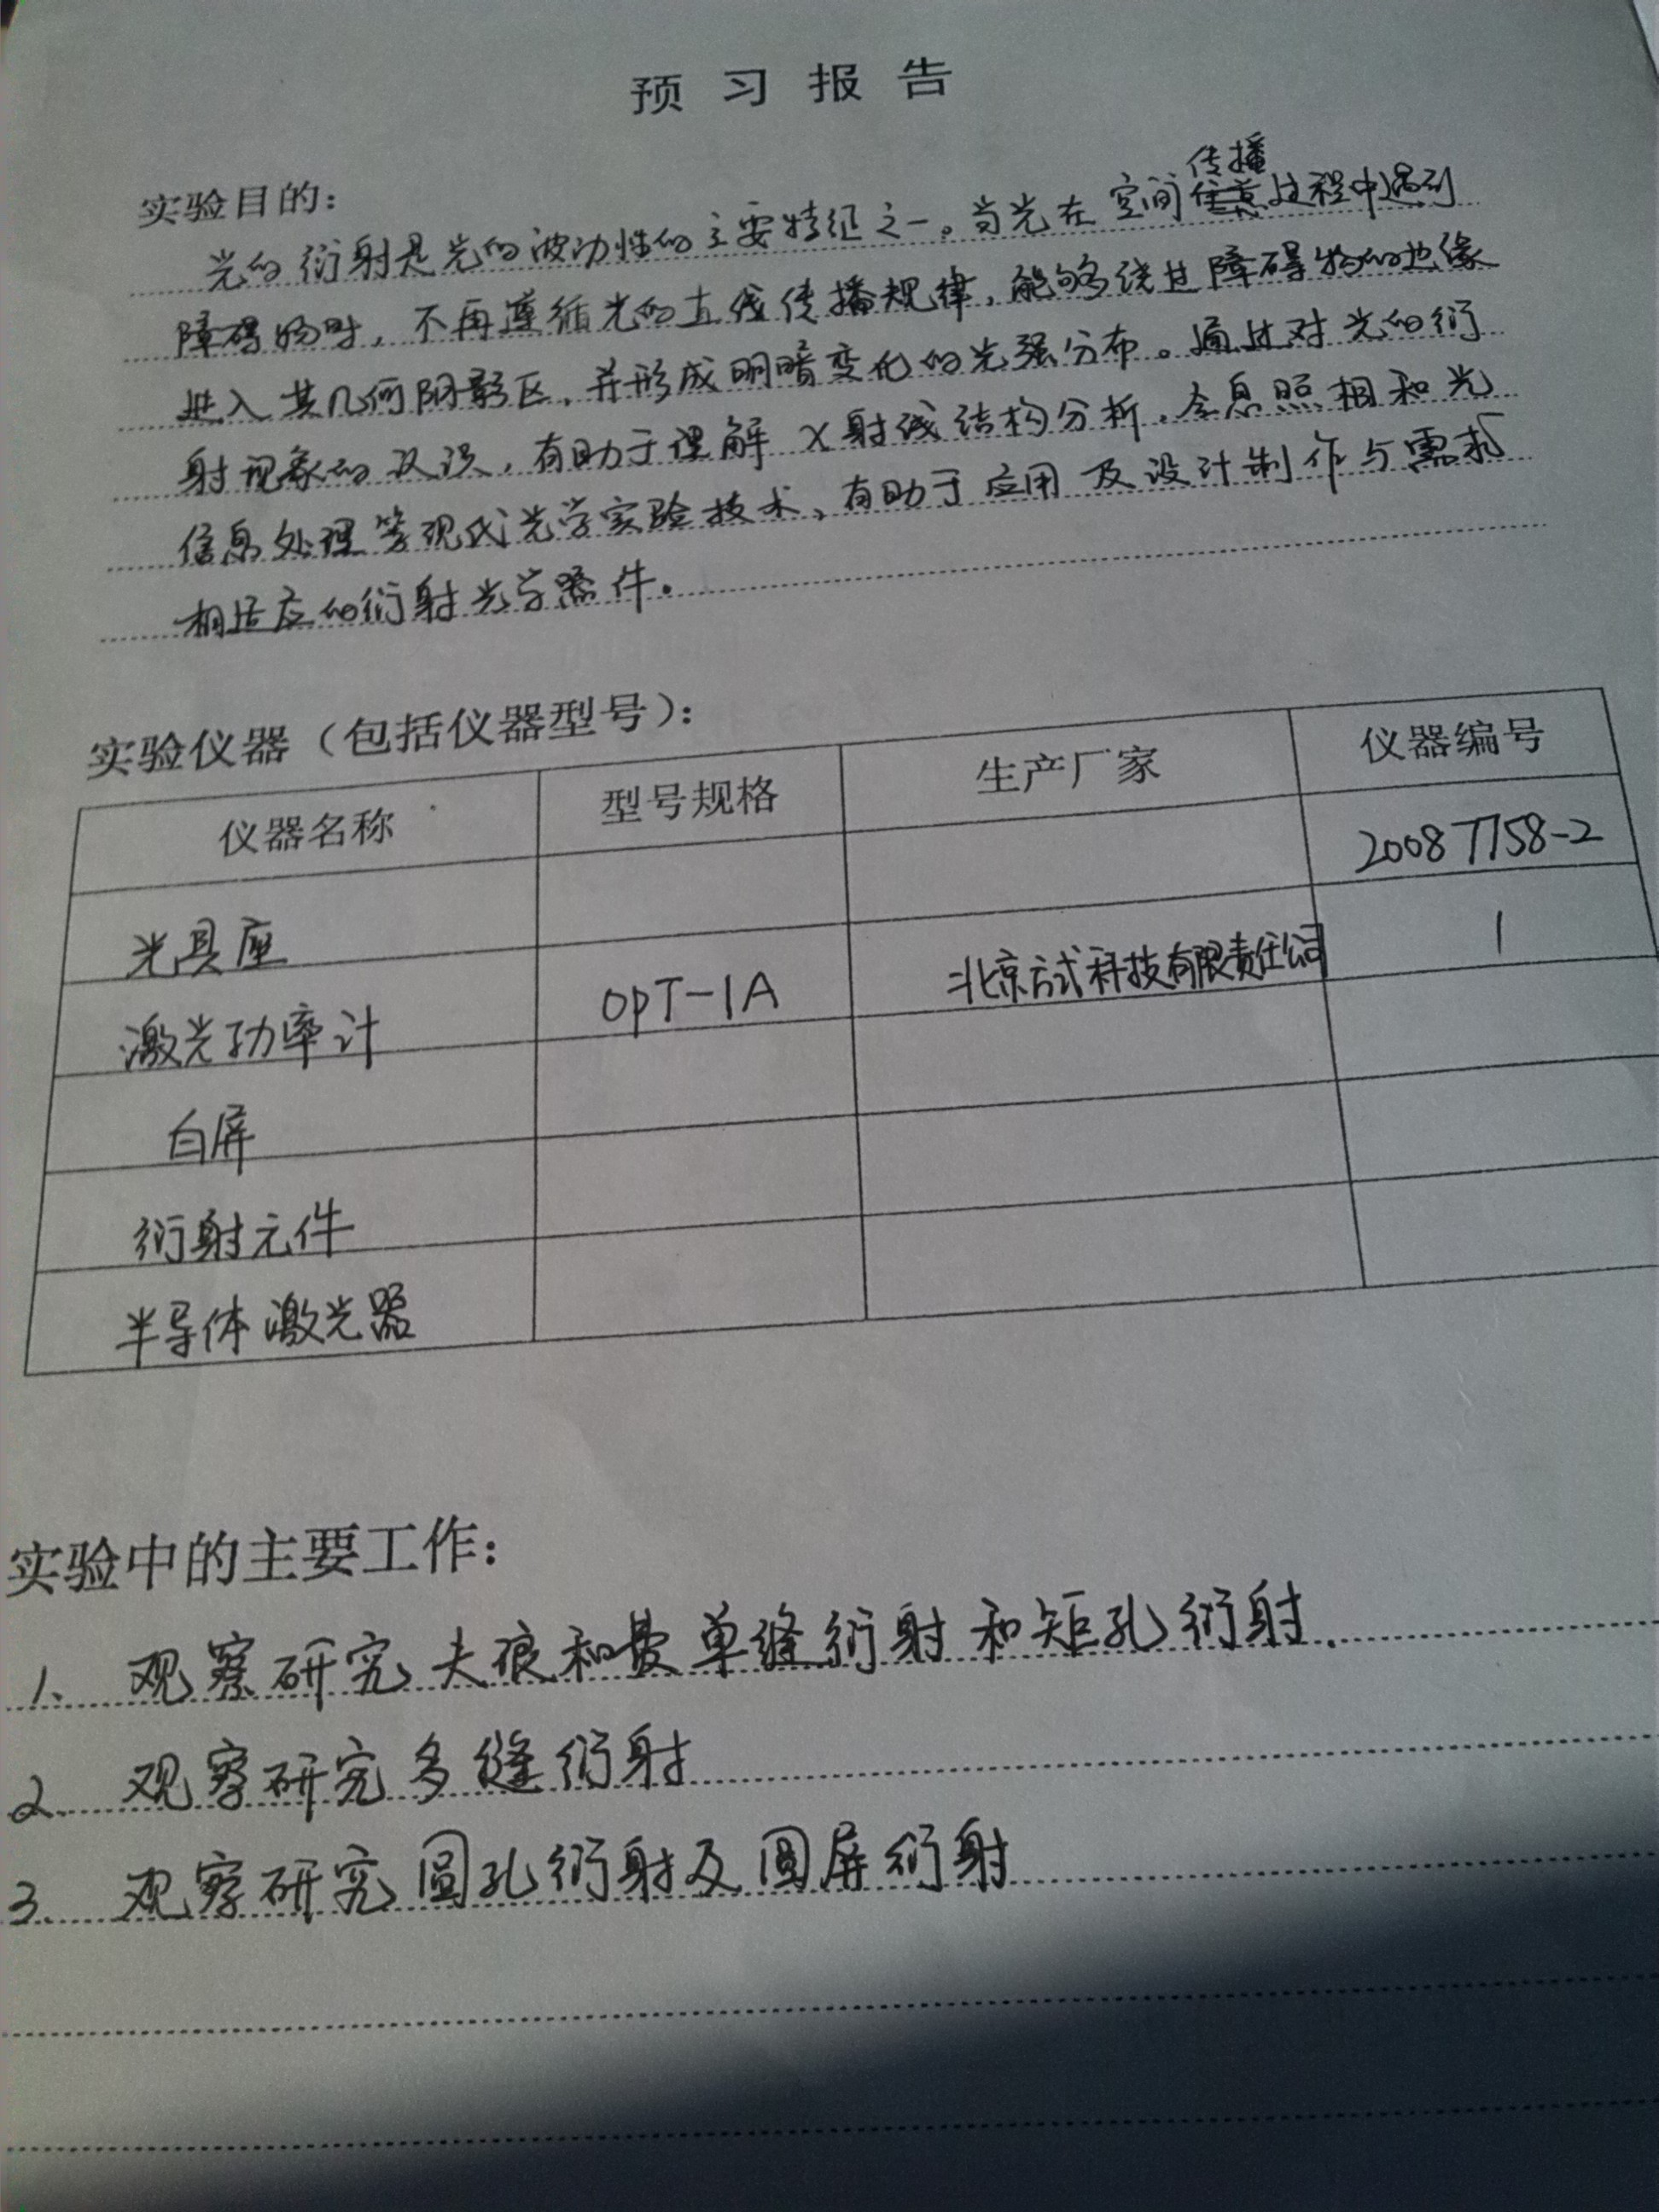 预习报告
实验目的：
光的衍射是光的波动性的主要特征之一。当光在空间传播过程中遇到
障碍物时，不再遵循光的直线传播规律，能够绕过障碍物的边缘
进入其几何阴影区，并形成明暗变化的光强分布。通过对光的衍
射现象的认识，有助于理解X射线结构分析，全息照相和光
信息处理等现代光学实验技术，有助于应用及设计制作与需求
相适应的衍射光学器件。
实验仪器（包括仪器型号）：
仪器名称 型号规格 生产厂家 仪器编号
20087758-2
光具座
激光功率计 OPT-1A 北京方式科技有限责任公司 1
白屏
衍射元件
半导体激光器
实验中的主要工作：
1、观察研究夫琅和费单缝衍射和矩孔衍射.
2、观察研究多缝衍射
3、观察研究圆孔衍射及圆屏衍射